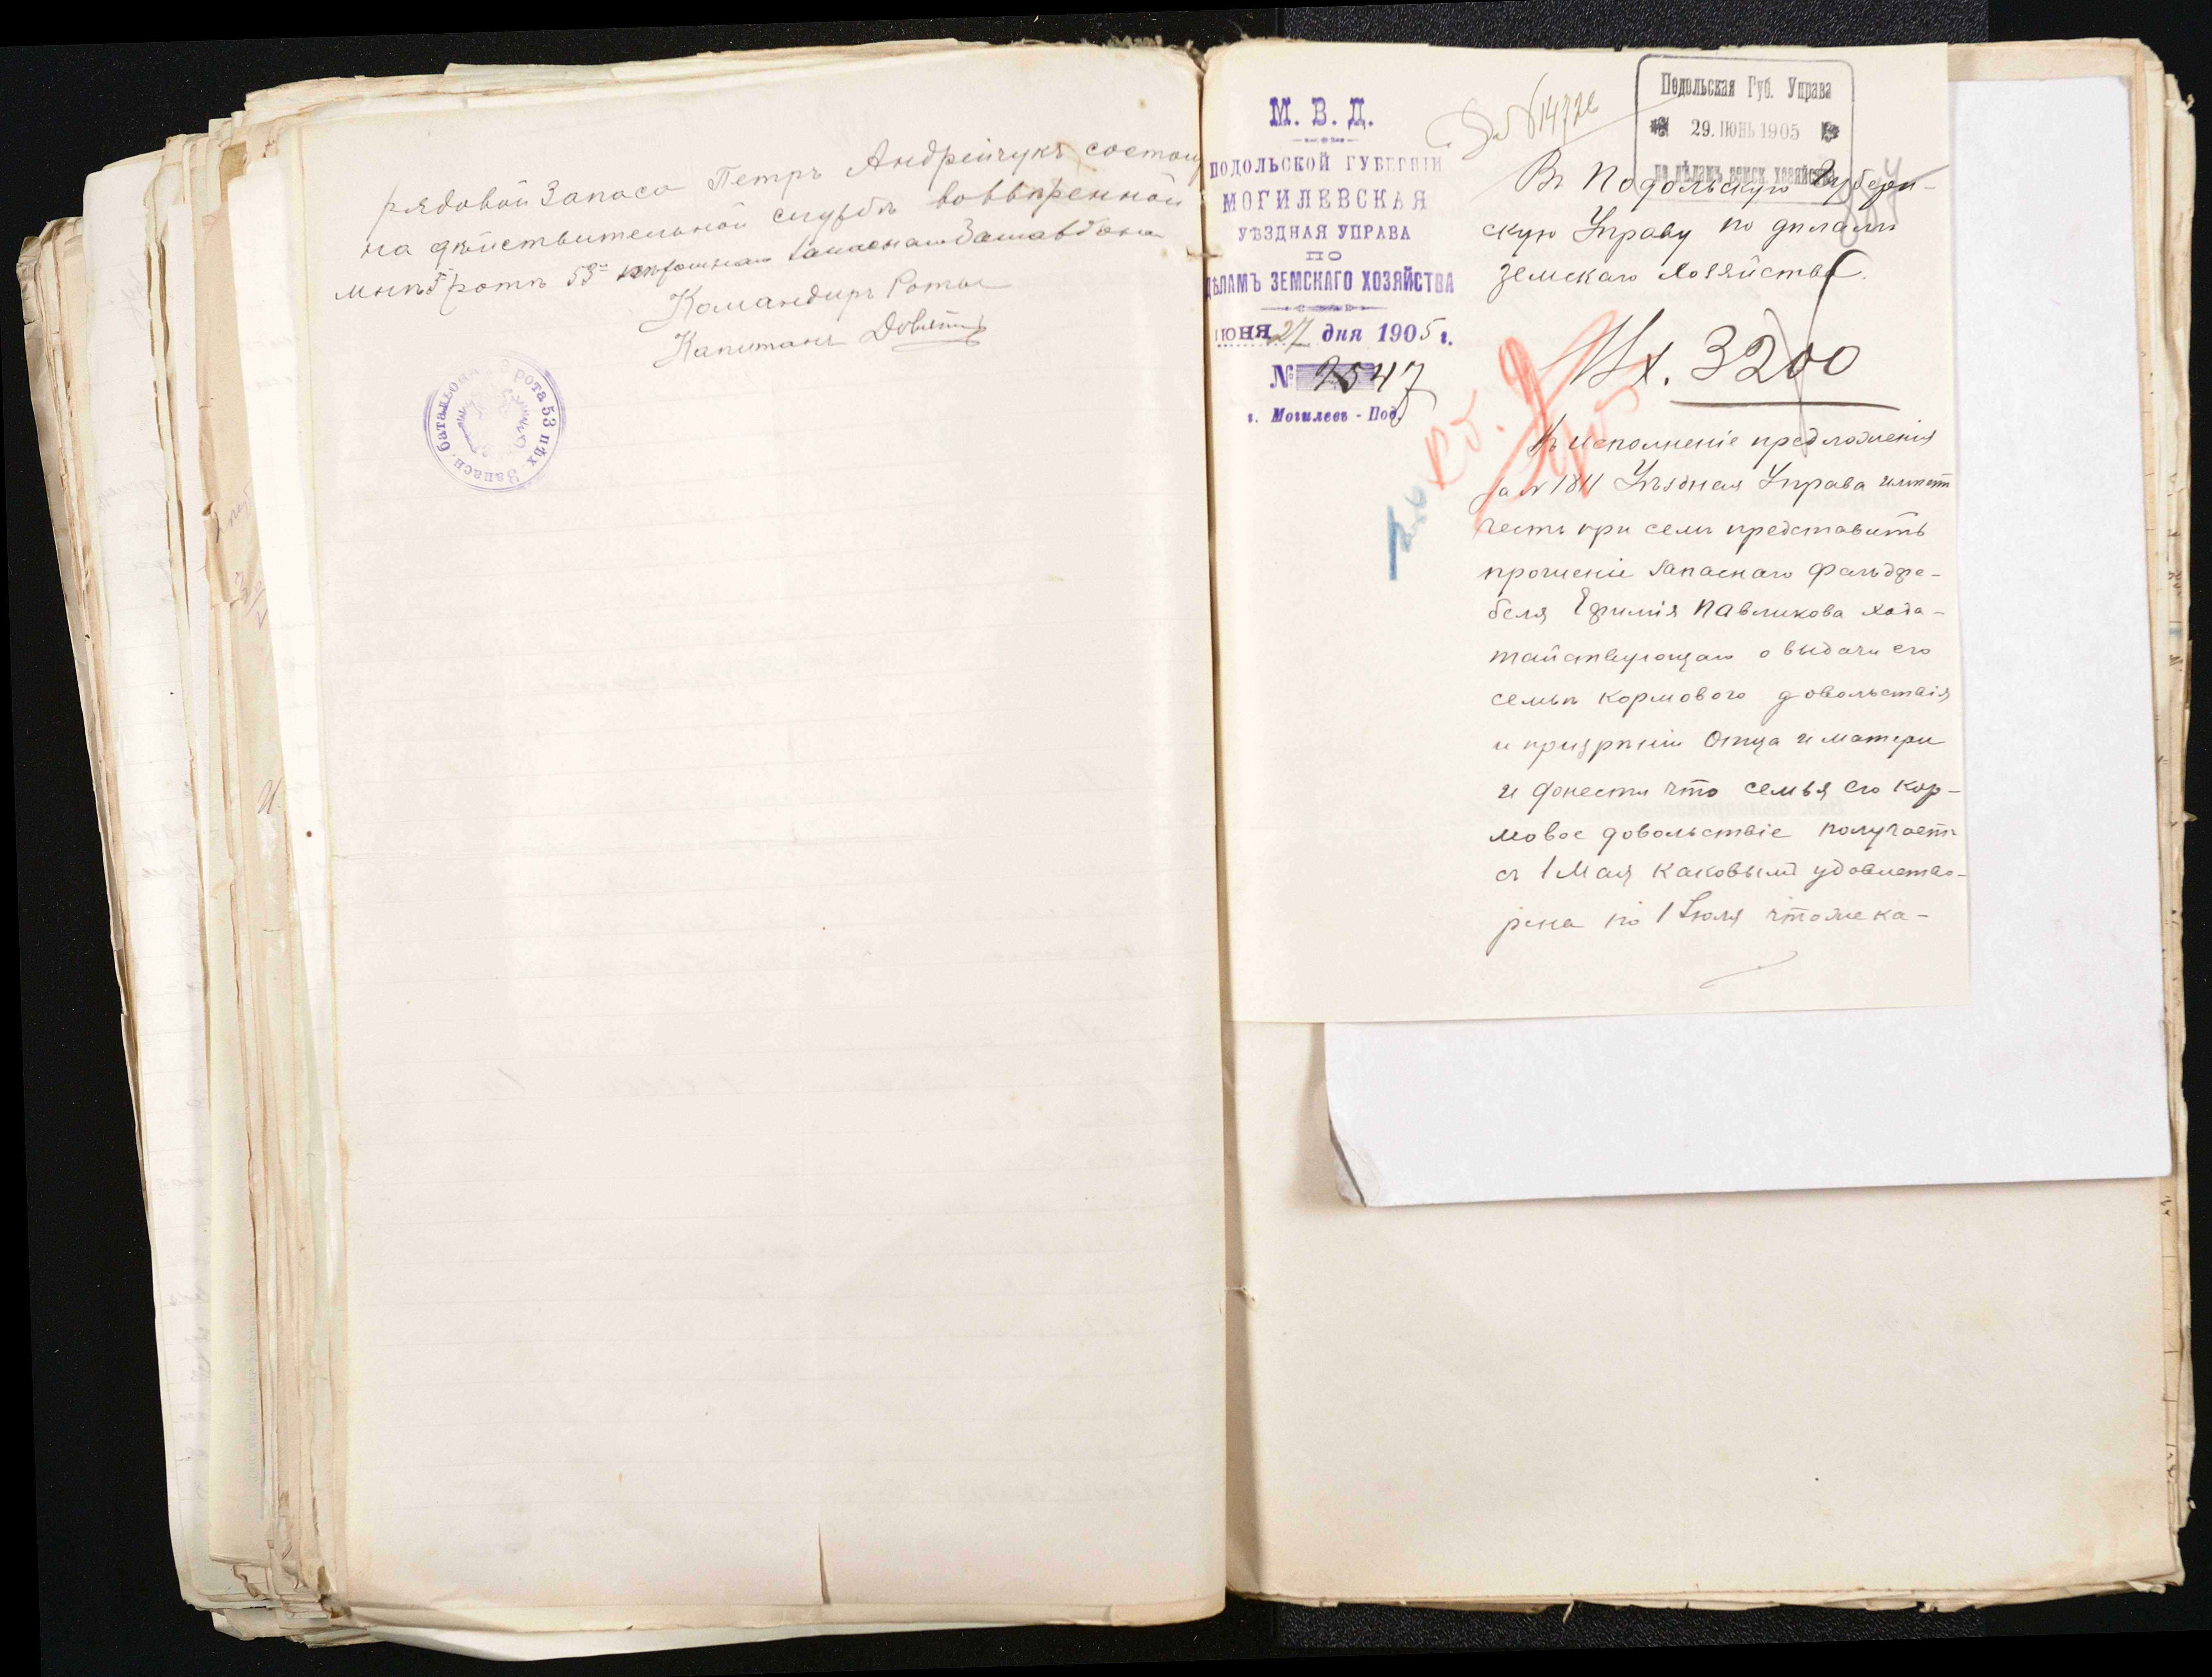 рядовой Запаса Петръ Андрейчукъ состои
на дѣйствительной службѣ во ввѣренной
мнѣ ротѣ 53го пѣхотнаго запаснаго баталіона
Командиръ Роты
Капитанъ
рота 53 пѣх. Запасн. батальона
М. В. Д.
ПОДОЛЬСКОЙ ГУБЕРНІИ
МОГИЛЕВСКАЯ
УѢЗДНАЯ УПРАВА
ПО
ДѢЛАМЪ ЗЕМСКАГО ХОЗЯЙСТВА
ІЮНЯ 27 дня 1905 г.
№ 2547
г. Могилевъ - Под.
Подольская Губ. Управа
29. ІЮНЬ 1905
по дѣламъ земск. хозяйства
Въ Подольскую Губерн-
скую Управу по дѣламъ
земскаго Хозяйства.
Вх. 3200
Въ исполненіе предложенія
за № 1811 Уѣздная Управа имѣетъ
честь при семъ представить
прошеніе запаснаго фельдфе-
беля Ефимія Павликова хода-
тайствующаго о выдачи его
семьѣ кормового довольствія
и призрѣніи Отца и матери
и донести что семья его кор-
мовое довольствіе получаетъ
съ 1 Мая каковымъ удовлетво-
рена по 1 Іюля что же ка-